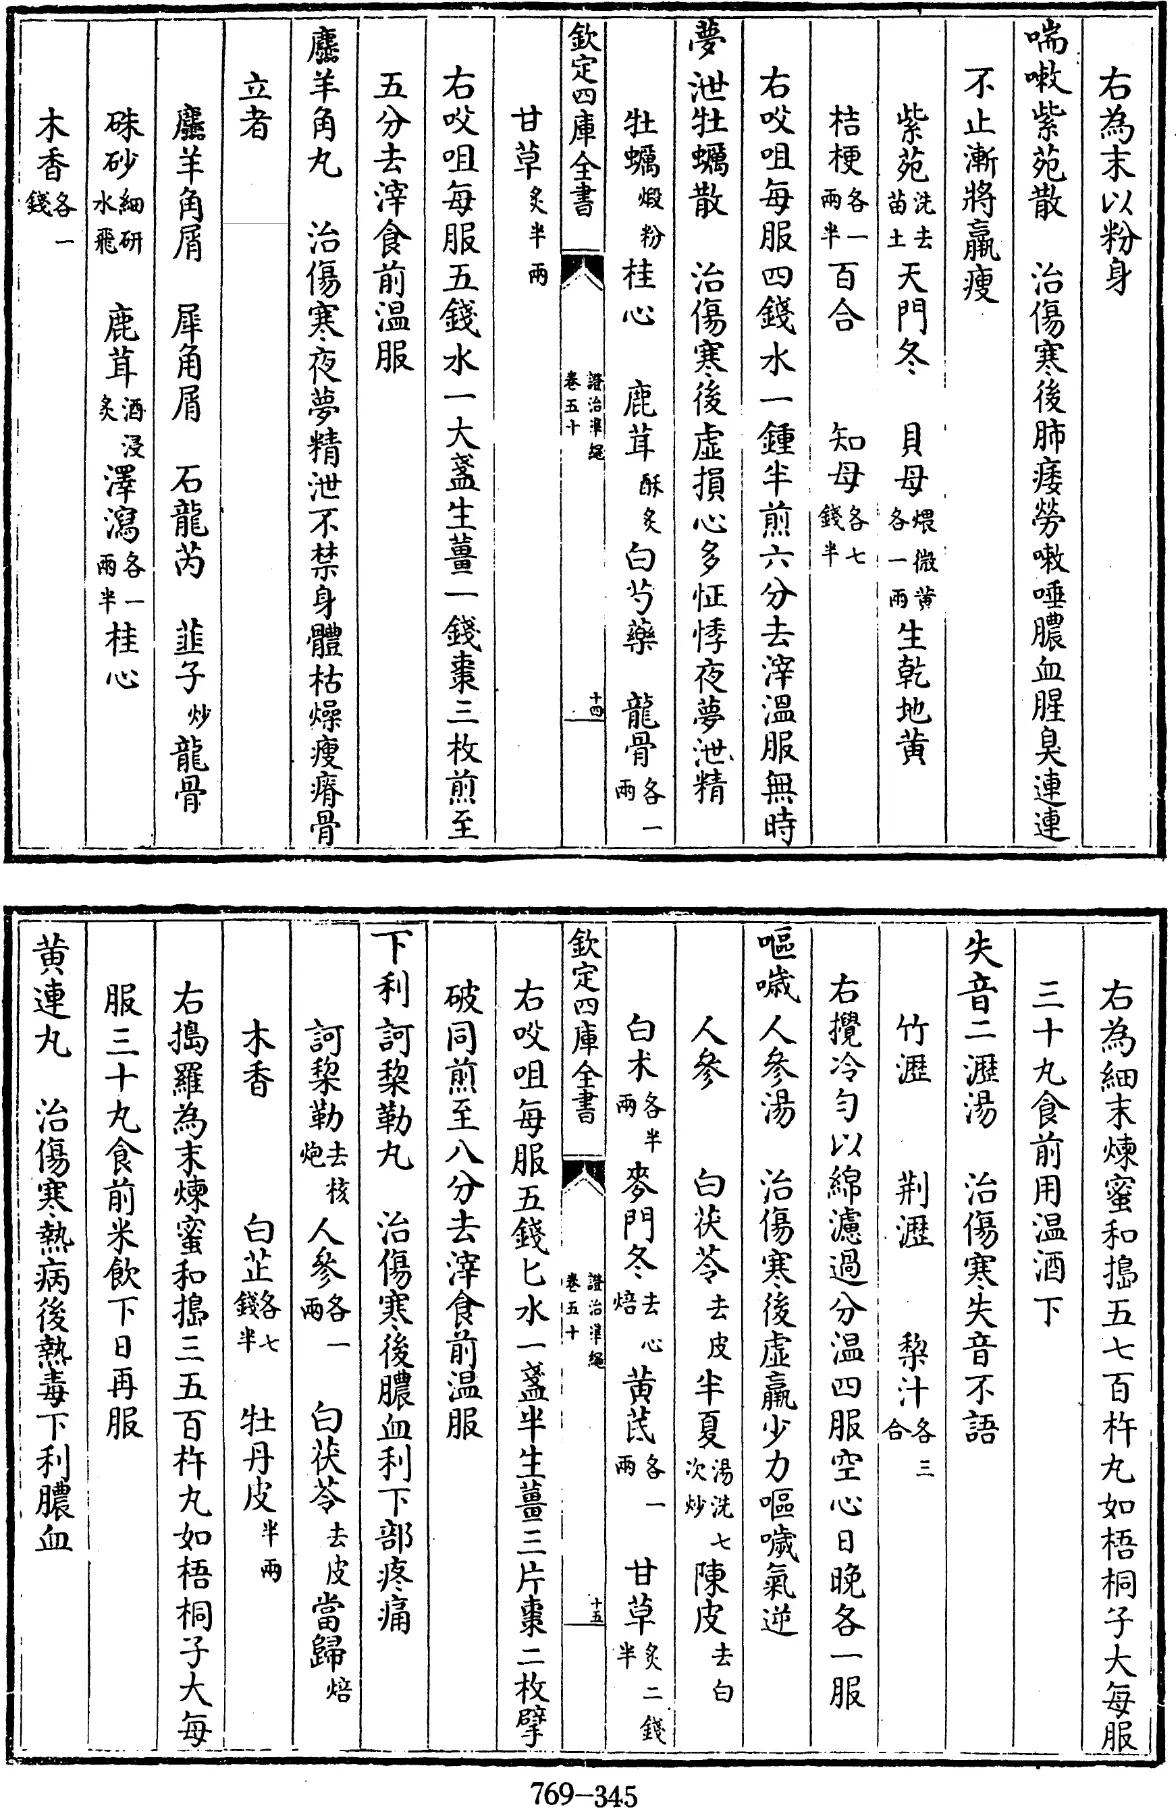 右為末以粉身
喘嗽紫苑散　治傷寒後肺痿勞嗽唾膿血腥臭連連
不止漸將羸瘦
紫苑洗去苗土　天門冬　貝母煨微黄各一兩　生乾地黄
桔梗各一兩半　百合　知母各七錢半
右㕮咀每服四錢水一鍾半煎六分去滓溫服無時
夢泄牡蠣散　治傷寒後虛損心多怔悸夜夢泄精
牡蠣煅粉　桂心　鹿茸酥炙　白芍藥　龍骨各一兩
欽定四庫全書　證治準繩卷五十　十四
甘草炙半兩
右㕮咀每服五錢水一大盞生薑一錢棗三枚煎至
五分去滓食前温服
麢羊角丸　治傷寒夜夢精泄不禁身體枯燥瘦瘠骨
立者
麢羊角屑　犀角屑　石龍芮　韮子炒　龍骨
硃砂細研水飛　鹿茸酒浸炙　澤瀉各一兩半　桂心
木香各一錢
右為細末煉蜜和搗五七百杵丸如梧桐子大每服
三十丸食前用温酒下
失音二瀝湯　治傷寒失音不語
竹瀝　荆瀝　棃汁各三合
右攪冷勻以綿濾過分温四服空心日晚各一服
嘔噦人參湯　治傷寒後虛羸少力嘔噦氣逆
人參　白茯苓去皮　半夏湯洗七次炒　陳皮去白
白术各半兩　麥門冬去心焙　黄芪各一兩　甘草炙二錢半
欽定四庫全書　證治準繩卷五十　十五
右㕮咀每服五錢匕水一盞半生薑三片棗二枚擘
破同煎至八分去滓食前温服
下利訶棃勒丸　治傷寒後膿血利下部疼痛
訶棃勒去核炮　人參各一兩　白茯苓去皮　當歸焙
木香　白芷各七錢半　牡丹皮半兩
右搗羅為末煉蜜和搗三五百杵丸如梧桐子大每
服三十丸食前米飲下日再服
黄連丸　治傷寒熱病後熱毒下利膿血
769-345